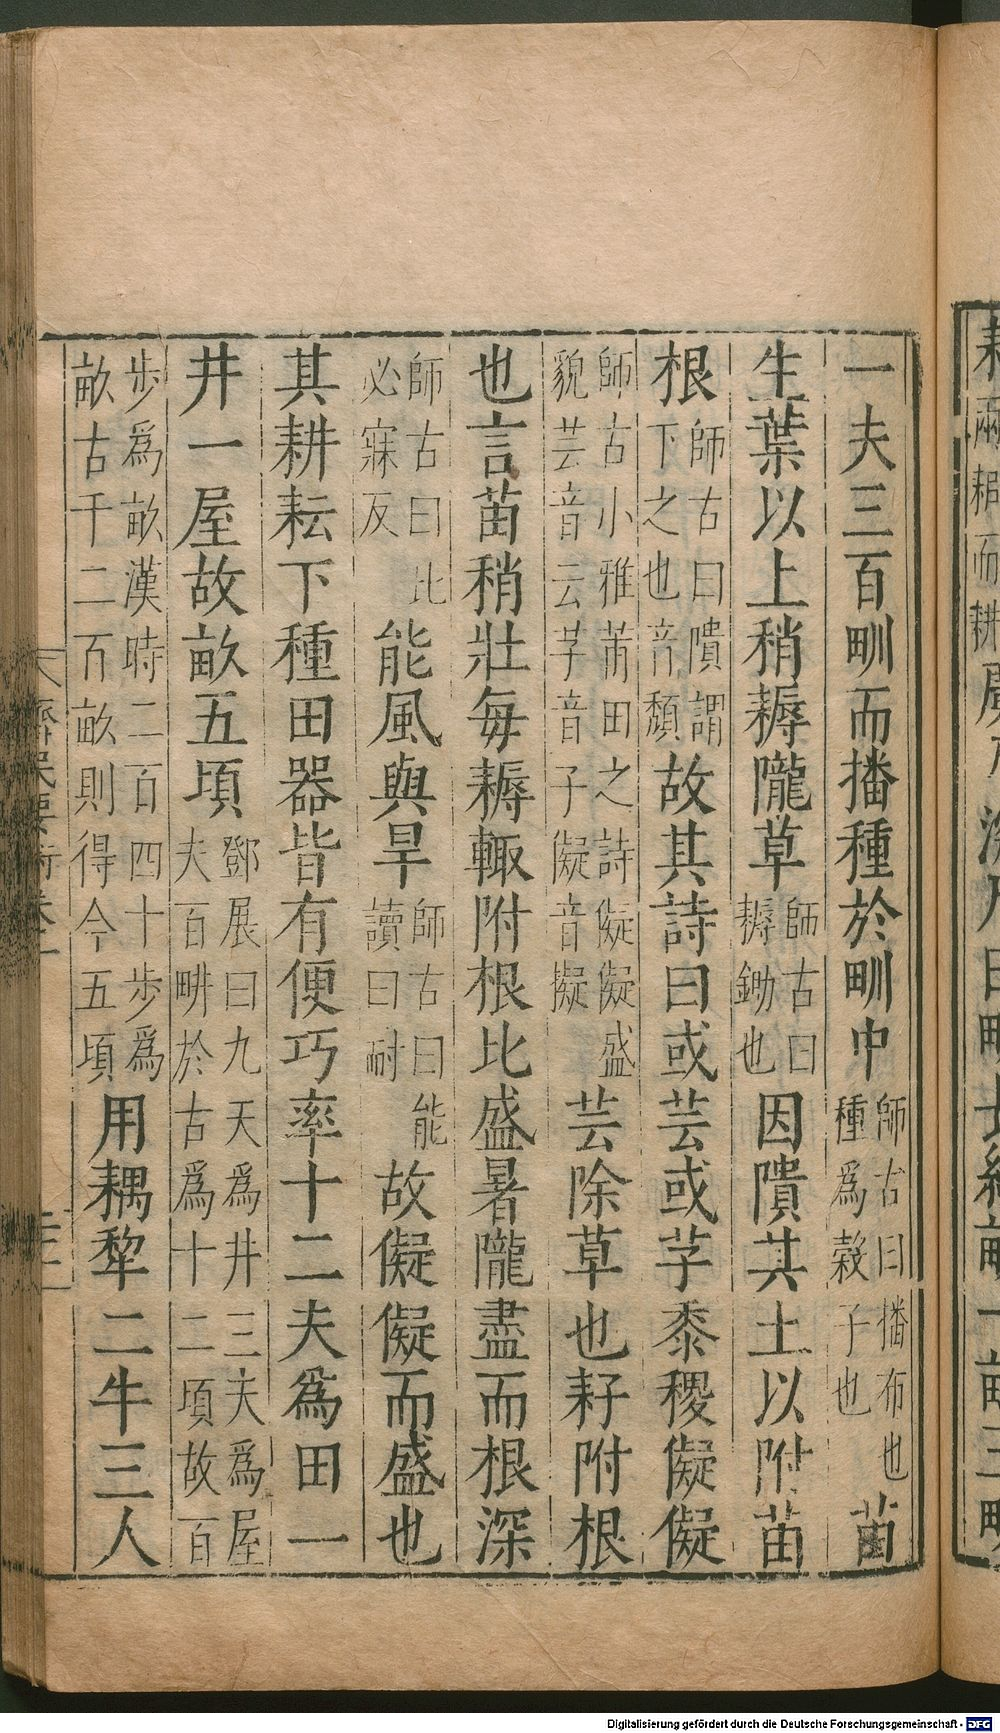 兩耜而耕廣尺深尺曰甽長終畝一畝三甽
一夫三百甽而播種於甽中師古曰播布也種爲榖子也苗
生葉以上稍耨隴草師古曰耨鋤也因隤其土以附苗
根師古曰隤謂下之也音頹故其詩曰或芸或芓黍稷儗儗
師古小雅莆田之詩儗儗盛貌芸音云芓音子儗音擬芸除草也耔附根
也言苗稍壯每耨輙附根比盛暑隴盡而根深
師古曰比必寐反能風與旱師古曰能讀曰耐故儗儗而盛也
其耕耘下種田器皆有便巧率十二夫爲田一
井一屋故畝五頃鄧展曰九天爲井三夫爲屋夫百畊於古爲十二頃故百
步爲畝漢時二百四十步爲畝古千二百畝則得今五頃用耦犂二牛三人
齊民要術卷一
Digitalisierung gefördert durch die Deutsche Forschungsgemeinschaft - DFG